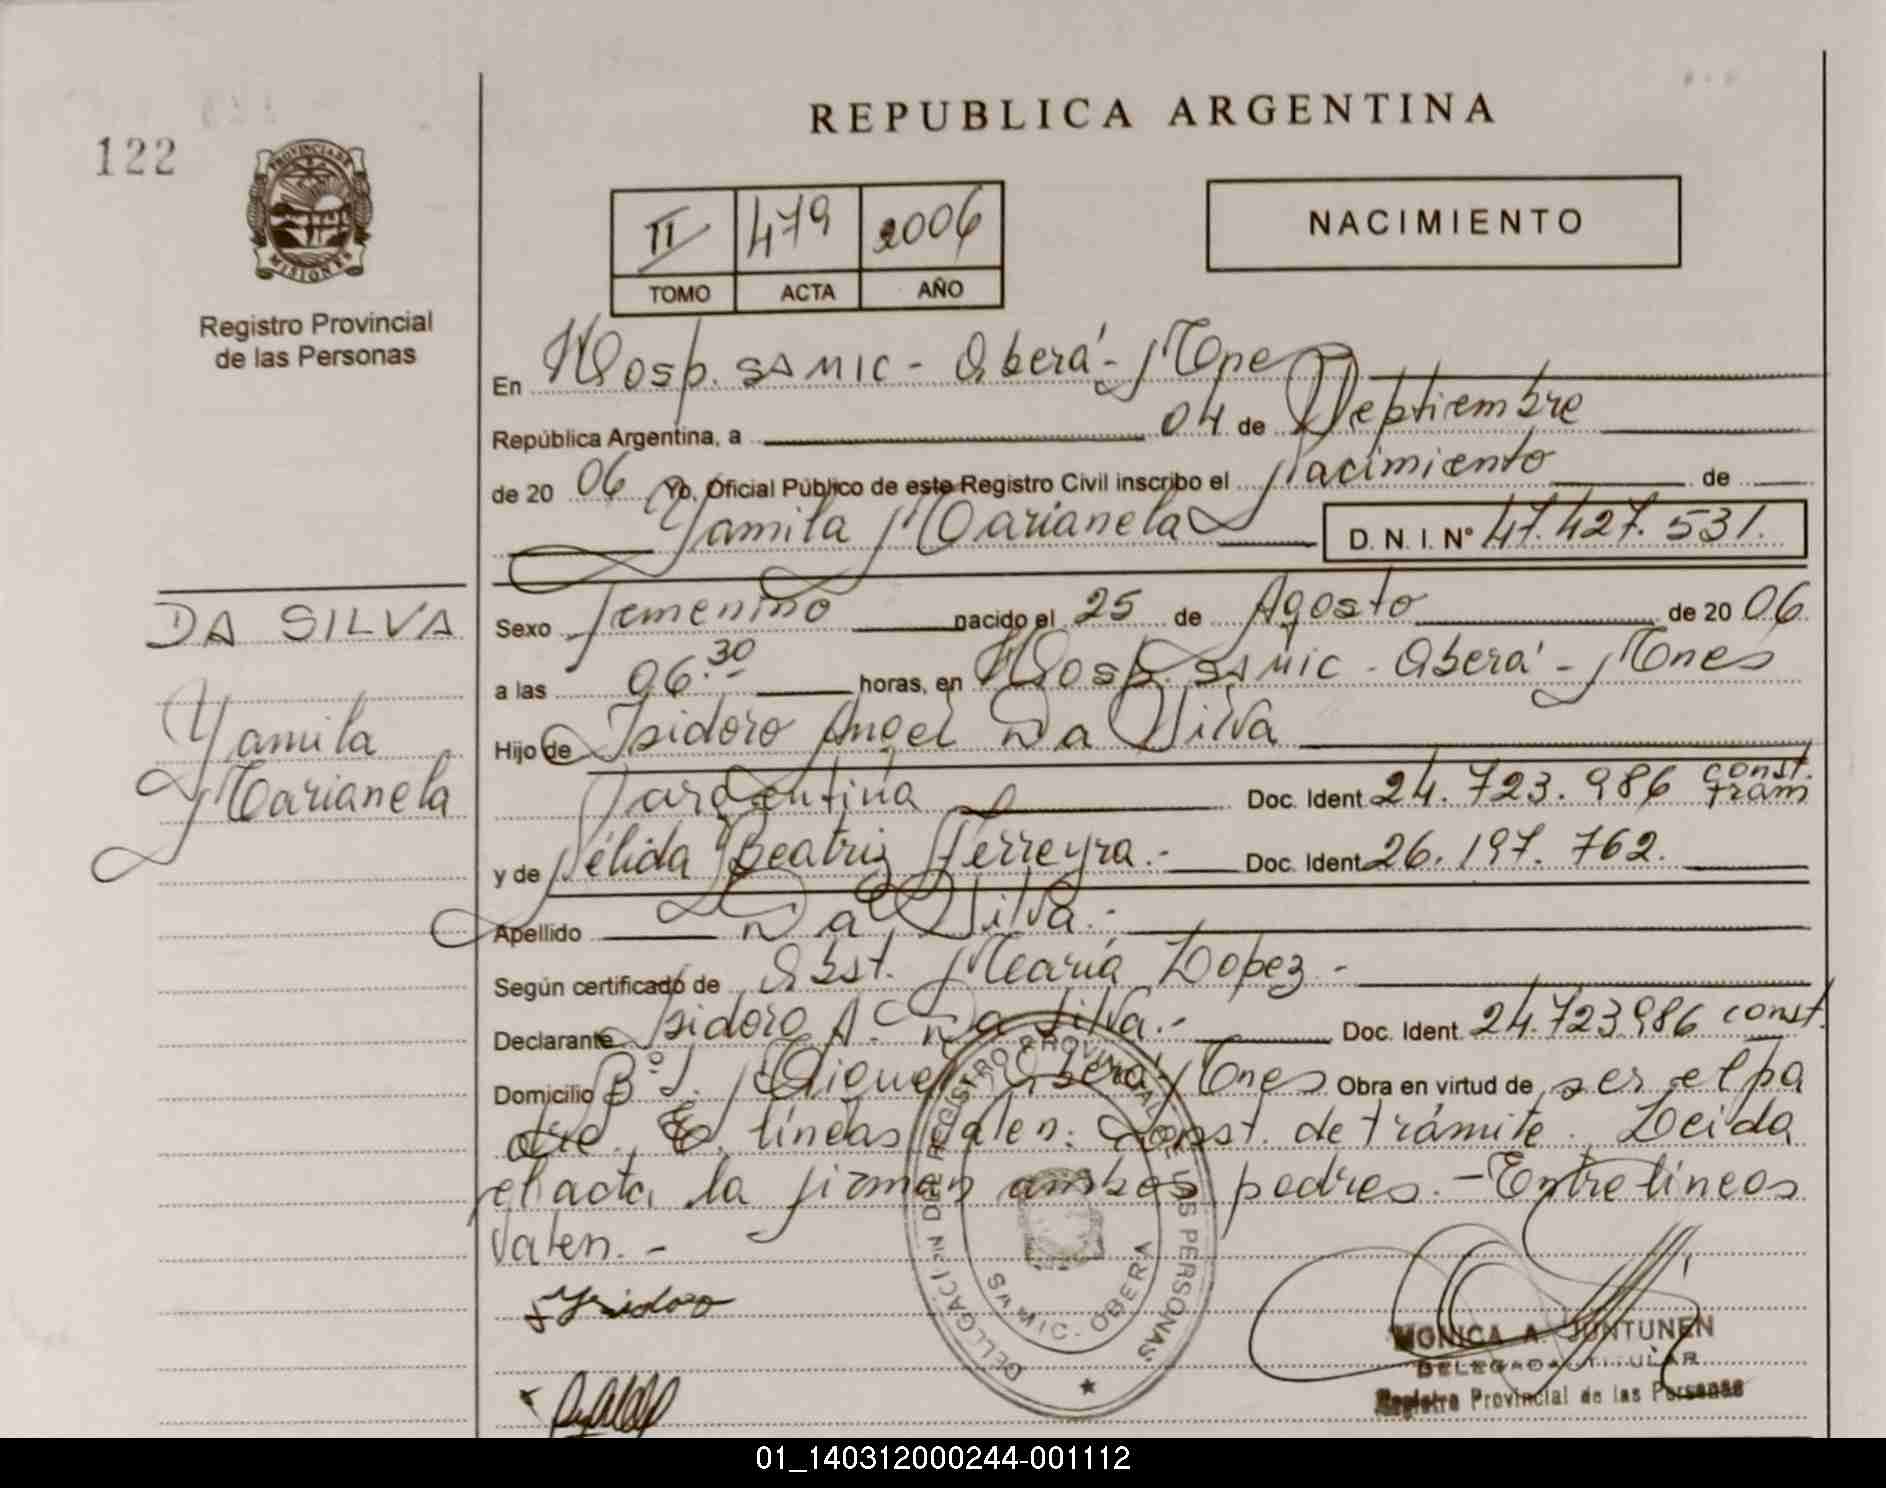 REPUBLICA ARGENTINA
122
PROVINCIA DE
MISIONES
Registro Provincial
de las Personas
II 479 2006
TOMO ACTA AÑO
NACIMIENTO
En Hosp. SAMIC - Oberá - Mnes
República Argentina, a 04 de Septiembre
de 20 06 Yo, Oficial Público de este Registro Civil inscribo el Nacimiento de
Yamila Marianela D. N. I. N° 47.427.531.
DA SILVA
Yamila
Marianela
Sexo femenino nacido el 25 de Agosto de 20 06
a las 06.30 horas, en Hosp. SAMIC - Oberá - Mnes
Hijo de Isidoro Angel Da Silva
argentina Doc. Ident 24.723.986 const. tram
y de Nélida Beatriz Ferreyra.- Doc. Ident. 26.197.762.
Apellido Da Silva.-
Según certificado de Obst. María Lopez -
Declarante Isidoro A. Da Silva.- Doc. Ident. 24.723986 const.
Domicilio B° S. Miguel Oberá Mnes Obra en virtud de ser el pa
dre. E. líneas Valen: Const. de trámite. Leida
el acta la firman ambos padres. - Entre lineas
Valen. -
Isidoro
DELEGACION DEL REGISTRO PROVINCIAL DE LAS PERSONAS
SAMIC - OBERA
MONICA A. JUNTUNEN
DELEGADA TITULAR
Registro Provincial de las Personas
01_140312000244-001112